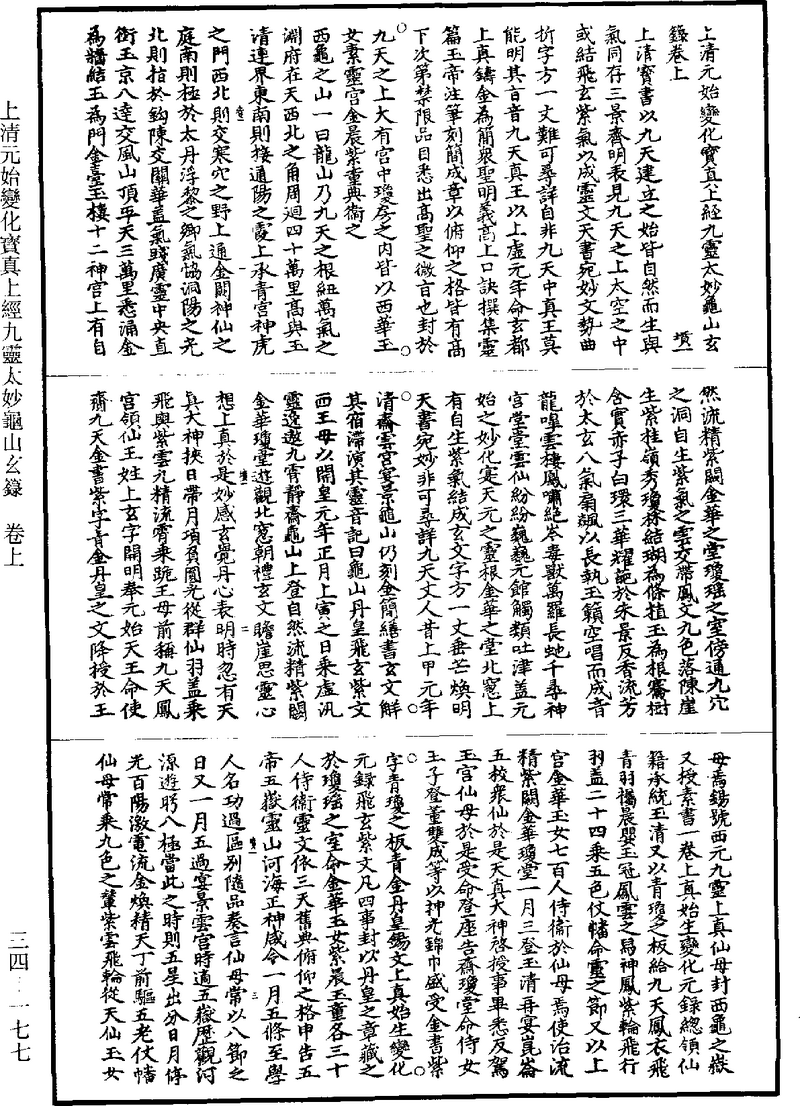 上清元始變化寶真上經九靈太妙龜山玄
籙卷上　墳一
上清寶書以九天建立之始皆自然而生與
氣同存三景齊明表見九天之上太空之中
或結飛玄紫氣以成靈文天書宛妙文勢曲
折字方一丈難可尋詳自非九天中真王莫
能明其音旨九天真王以上虛元年命玄都
上真鑄金為簡眾聖明義高上口訣撰集靈
篇玉帝注筆刻簡成章以俯仰之格皆有高
下次第禁限品目悉出高聖之微言也封於
九天之上大有宮中瓊房之內皆以西華玉
女素靈宮金晨紫童典衛之
西龜之山一曰龍山乃九天之根紐萬氣之
淵府在天西北之角周迴四十萬里高與玉
清連界東南則接通陽之霞上承青宮神虎
之門西北則交寒穴之野上通金闕神仙之
庭南則極於太丹浮黎之鄉氣恊洞陽之光
北則指於鈎陳交關華蓋氣瑳廣靈中央直
衝玉京八達交風山頂平天三萬里悉涌金
為牆結玉為門金臺玉樓十二神宮上有自
然流精紫闕金華之堂瓊瑶之室傍通九穴
之洞自生紫氣之雲交帶鳳文九色落陳崖
生紫桂嶺秀瓊林結瑚為條植玉為根騫樹
含實赤子白環三華耀葩於朱景反香流芳
於太玄八氣扇飆以長執玉籟空唱而成音
龍嘷雲棲鳳嘯絕岑毒獸萬羅長虵千尋神
宮堂堂雲仙紛紛巍巍元館觸類吐津蓋元
始之妙化宴天元之靈根金華之堂北窻上
有自生紫氣結成玄文字方一丈垂芒煥明
天書宛妙非可尋詳九天丈人昔上甲元年
清齋雲宮宴景龜山仍刻金簡繕書玄文解
其宿滯演其靈音記曰龜山丹皇飛玄紫文
西王母以開皇元年正月上寅之日乘虛汎
靈逸遨九霄靜齋龜山上登自然流精紫闕
金華瓊堂遊觀北窻朝禮玄文瞻崖思靈心
想上真於是妙感玄覺丹心表明時忽有天
真大神挾日帶月項負圓光從群仙羽蓋乘
飛輿紫雲九精流霄乘跪王母前稱九天鳳
宮領仙王姓上玄字開明奉元始天王命使
齎九天金書紫字青金丹皇之文降授於王
母焉錫號西元九靈上真仙母封西龜之嶽
又授素書一卷上真始生變化元錄總領仙
籍承統玉清又以青瓊之板給九天鳳衣飛
青羽襦晨嬰玉冠鳳雲之舄神鳳紫輪飛行
羽蓋二十四乘五色仗幡命靈之節又以上
宮金華玉女七百人侍衛於仙母焉使治流
精紫闕金華瓊堂一月三登玉清再宴崑崙
五校眾仙於是天真大神啓授事畢悉反駕
玉宮仙母於是受命登座告齋瓊堂命侍女
王子登董雙成等以神光錦巾盛受金書紫
字青瓊之板青金丹皇錫文上真始生變化
元錄飛玄紫文凡四事封以丹皇之章藏之
於瓊瑶之室命金華玉女紫晨玉童各三十
人侍衛靈文依三天舊典俯仰之格申告五
帝五嶽靈山河海正神咸令一月五條至學
人名功過區別隨品奏言仙母常以八節之
日又一月五過宴景雲宮時適五嶽歷觀河
源遊眄八極當此之時則五星出分日月停
光百陽激電流金煥精天丁前驅五老仗幡
仙母常乘九色之輦紫雲飛輪從天仙玉女
上清元始變化寶真上經九靈太妙龜山玄籙　卷上
三四—一七七